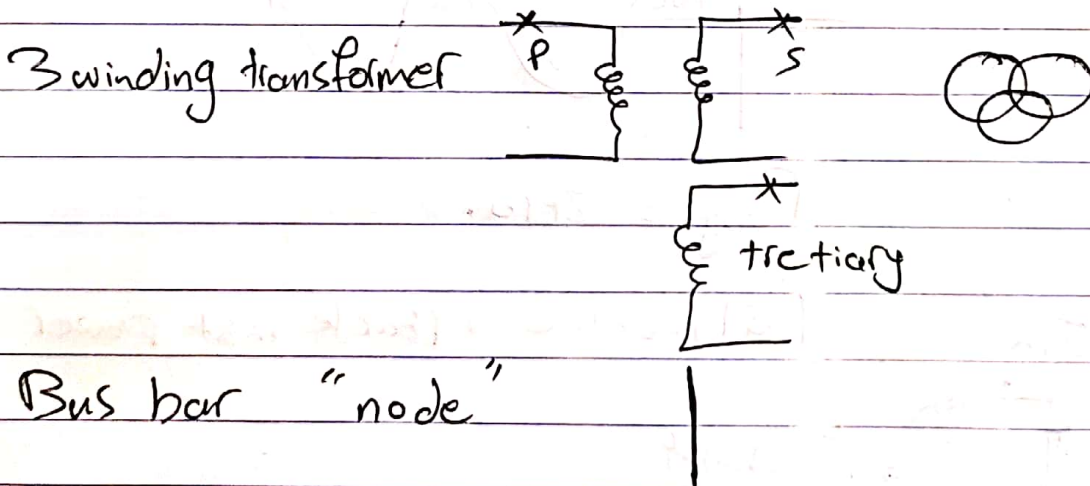 3 winding transformer
P
S
tretiary
Bus bar "node"